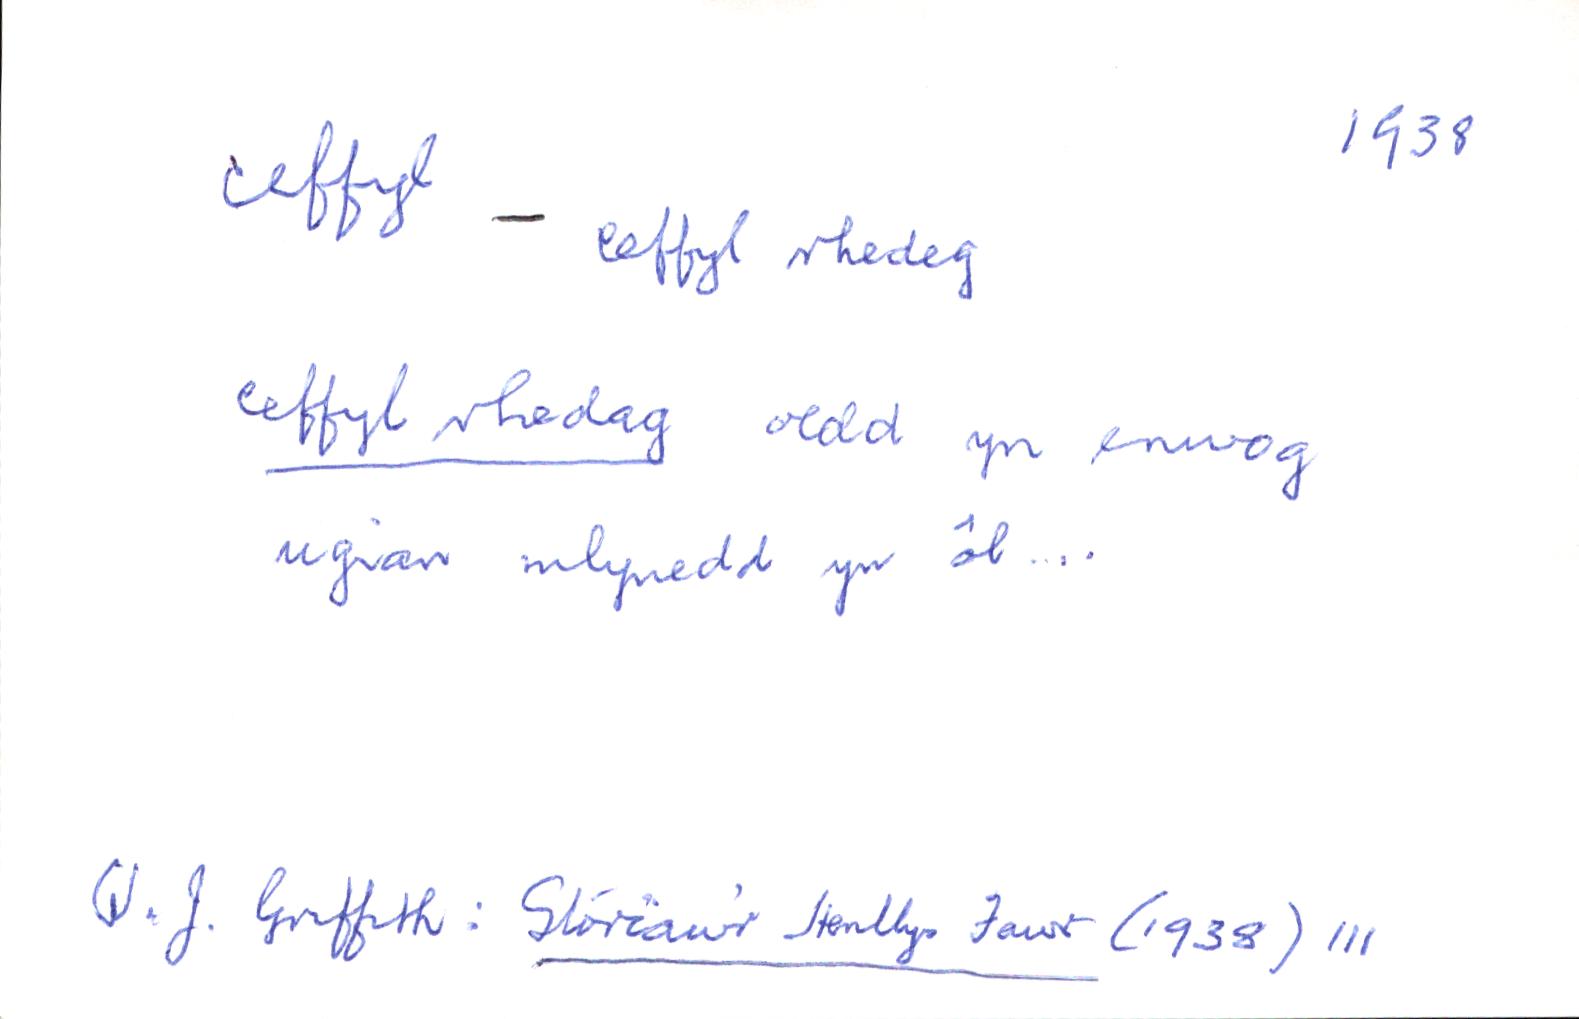 1938
ceffyl – ceffyl rhedeg
ceffyl rhedag oedd yn enwog
ugian mlynedd yn ôl....
W. J. Griffith: Storïau'r Henllys Fawr (1938) 111